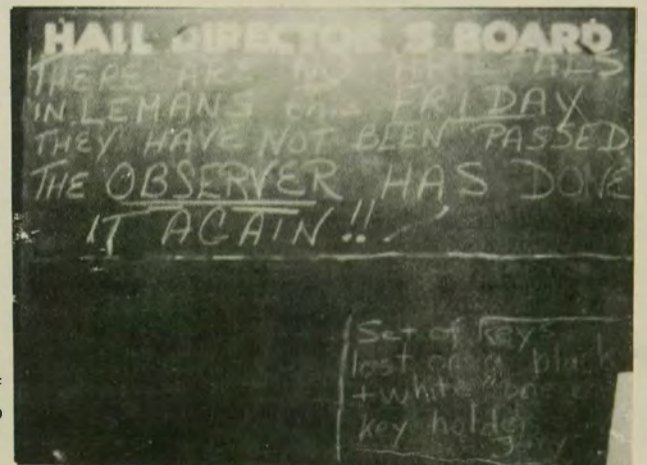 HALL DIRECTOR S BOARD
THERE ARE NO PARIETALS
IN LEMANS this FRIDAY
THEY HAVE NOT BEEN PASSED
THE OBSERVER HAS DONE
IT AGAIN!!
Set of keys
lost on a black
+ white
key holder